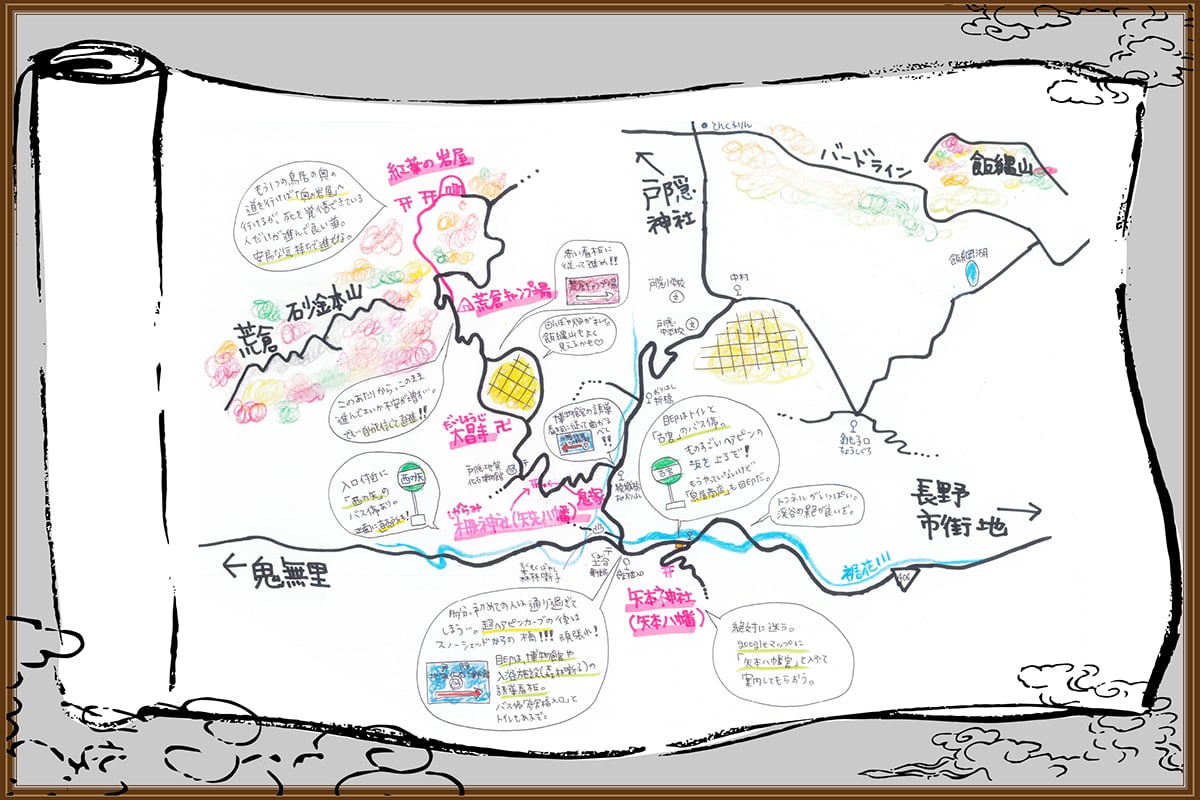 とんくるりん
バードライン
飯縄山
戸隠
神社
紅葉の岩屋
もう1つの鳥居の奥の
道を行けば「奥の岩屋」へ
行けるが、死を覚悟できている
人だけが進んで良い道。
安易な気持ちで進むな。
赤い看板に
従って進め!!
荒倉キャンプ場
荒倉キャンプ場
戸隠小学校
中村
飯綱湖
砂鉢山
荒倉
田んぼや畑がキレイ。
飯縄山もよく
見えるかも♡
戸隠
中学校
このあたりから、このまま
進んでよいか不安が増す…。
でも自分を信じて前進!!
だいしょうじ
大昌寺 卍
博物館の誘導
看板に従って曲がる
べし!!
目印はトイレと
「古宮」のバス停。
ものすごいヘアピンの
坂を上るぞ!
もうやっていないけど
も目印だ。
古宮
入口付近に
「西の矢」の
バス停あり。
西の矢
戸隠地質
化石博物館
鬼塚
しがらみ
柵神社(矢先八幡)
トンネルがいっぱい。
渓谷の絶が良いぞ。
長野
市街地
鬼無里
裾花川
406
矢本神社
(矢本八幡)
多分、初めての人は通り過ぎて
しまう…。超ヘアピンカーブの後は
スノーシェッドからの橋!!! 頑張れ!
目印は、博物館や
入浴施設(森林囃子)の
誘導看板。
トイレもあるぞ。
絶対に迷う。
googleマップに
「矢本八幡宮」と入れて
案内してもらおう。